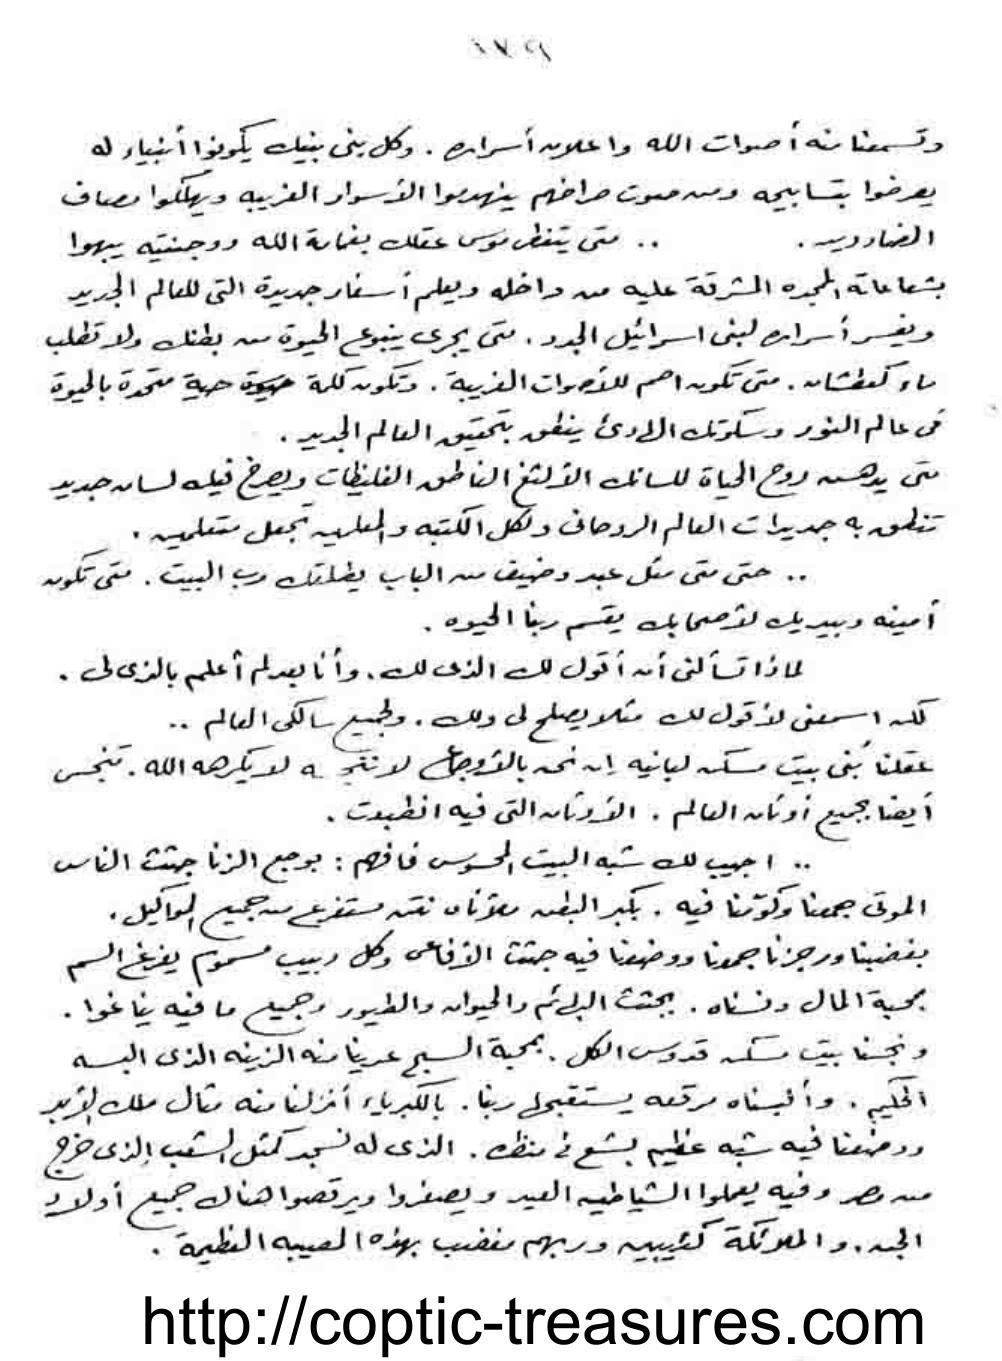 وتسمعنا منه أصوات الله واعلان أسراره . وكل بنى بنيك يكونوا أنبياء له
يعرضوا بتسابيحه ومن صوت صراخهم ينهدموا الأسوار الغريبه ويهلكوا مصاف
الضاددين . .. متى يتغطى موسى عقلك بغمامة الله ووجنتيه يبهوا
بشعاعاته الممجده المشرقة عليه من داخله ويعلم أسفار جديدة التى للعالم الجديد
ويفسر أسراره لبنى اسرائيل الجدد . متى يجرى ينبوع الحيوة من بطنك ولا تطلب
ماء كعطشان . متى تكون اصم للأصوات الغريبة . وتكون كلمة حية متحدة بالحيوة
فى عالم النور وسكوتك الهادئ ينطق بتحقيق العالم الجديد .
متى يدهن روح الحياة للسانك الألثغ الناطق الغليظات ويصرخ فيك لسان جديد
تنطق به جديدات العالم الروحانى ولكل الكتبه والمعلمين تجعل متعلمين .
.. حتى متى مثل عبد وضيف من الباب يطلقك رب البيت . متى تكون
أمينه وبيديك لأصحابك يقسم ربنا الحيوه .
لماذا تسألنى أن أقول لك الذى لك . وأنا بعد لم أعلم بالذى لى .
لكن اسمعنى لأقول لك مثلا يصلح لى ولك . ولجميع سالكى العالم ..
عقلنا بُنى بيت مسكن لبانيه إن نحن بالأوجاع لا ننجسه لا يكرهه الله . تنجس
أيضا بجميع أوثان العالم . الأوثان التى فيه انطبعت .
.. اجيب لك شبه البيت المحسوس فافهم : بوجع الزنا جثث الناس
الموتى جمعنا وكوّمنا فيه . بكبر البطن ملأناه نتن مستفرغ من جميع المواكيل .
بغضبنا ورجزنا جمعنا ووضعنا فيه جثث الأفاعى وكل دبيب مسموم يفرغ السم
بمحبة المال دنسناه . بجثث البهائم والحيوان والطيور وجميع ما فيه يناغوا .
ونجسنا بيت مسكن قدوس الكل . بمحبة السبح عرينا منه الزينه الذى البسه
الحكيم . وألبسناه مرقعه يستقبحها ربنا . بالكبرياء أنزلنا منه مثال ملك الأبد
ووضعنا فيه شبه عظيم بشع فى منظره . الذى له نسجد كمثل الشعب الذى خرج
من مصر وفيه يعملوا الشياطين العيد ويصفروا ويرقصوا هناك جميع أولاد
الجن . والملائكة كئيبين وربهم مغضب بهذه المصيبه العظيمة .
http://coptic-treasures.com